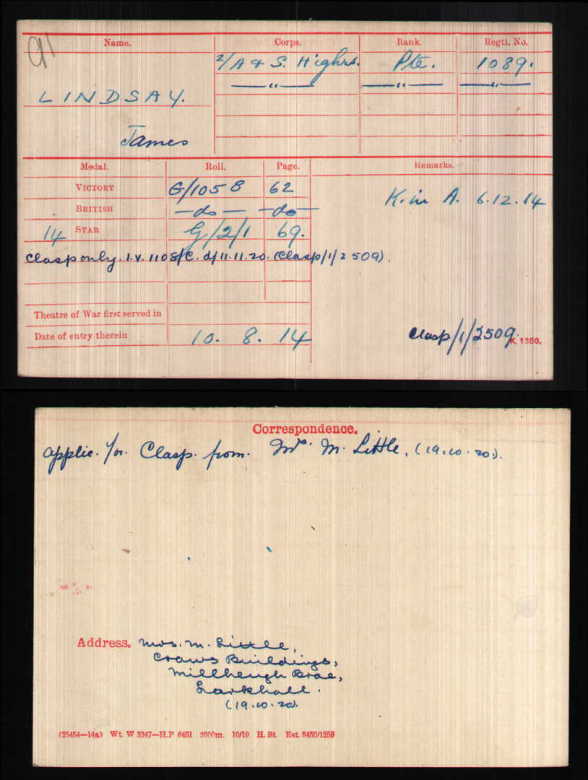 91
Name. Corps. Rank. Regtl. No.
2/A & S. Highrs. Pte. 1089.
LINDSAY. —"— —"— —"—
James
Medal. Roll. Page. Remarks.
VICTORY G/105 B 62
BRITISH —do— —do— K. in A. 6.12.14
14 STAR G/2/1 69.
Clasp only. I.V. 1108/C. d/11.11.20. (Clasp/1/2509).
Theatre of War first served in
Date of entry therein 10. 8. 14 Clasp/1/2509. K. 1380.
Correspondence.
Applic. for Clasp. from. Mrs. M. Little. (19.10.20).
Address. Mrs. M. Little,
Craws Buildings,
Millheugh Brae,
Larkhall.
(19.10.20).
(25454—14a) Wt. W 3347—H.P 6451 2000m. 10/19 H. St. Est. 8450/1259